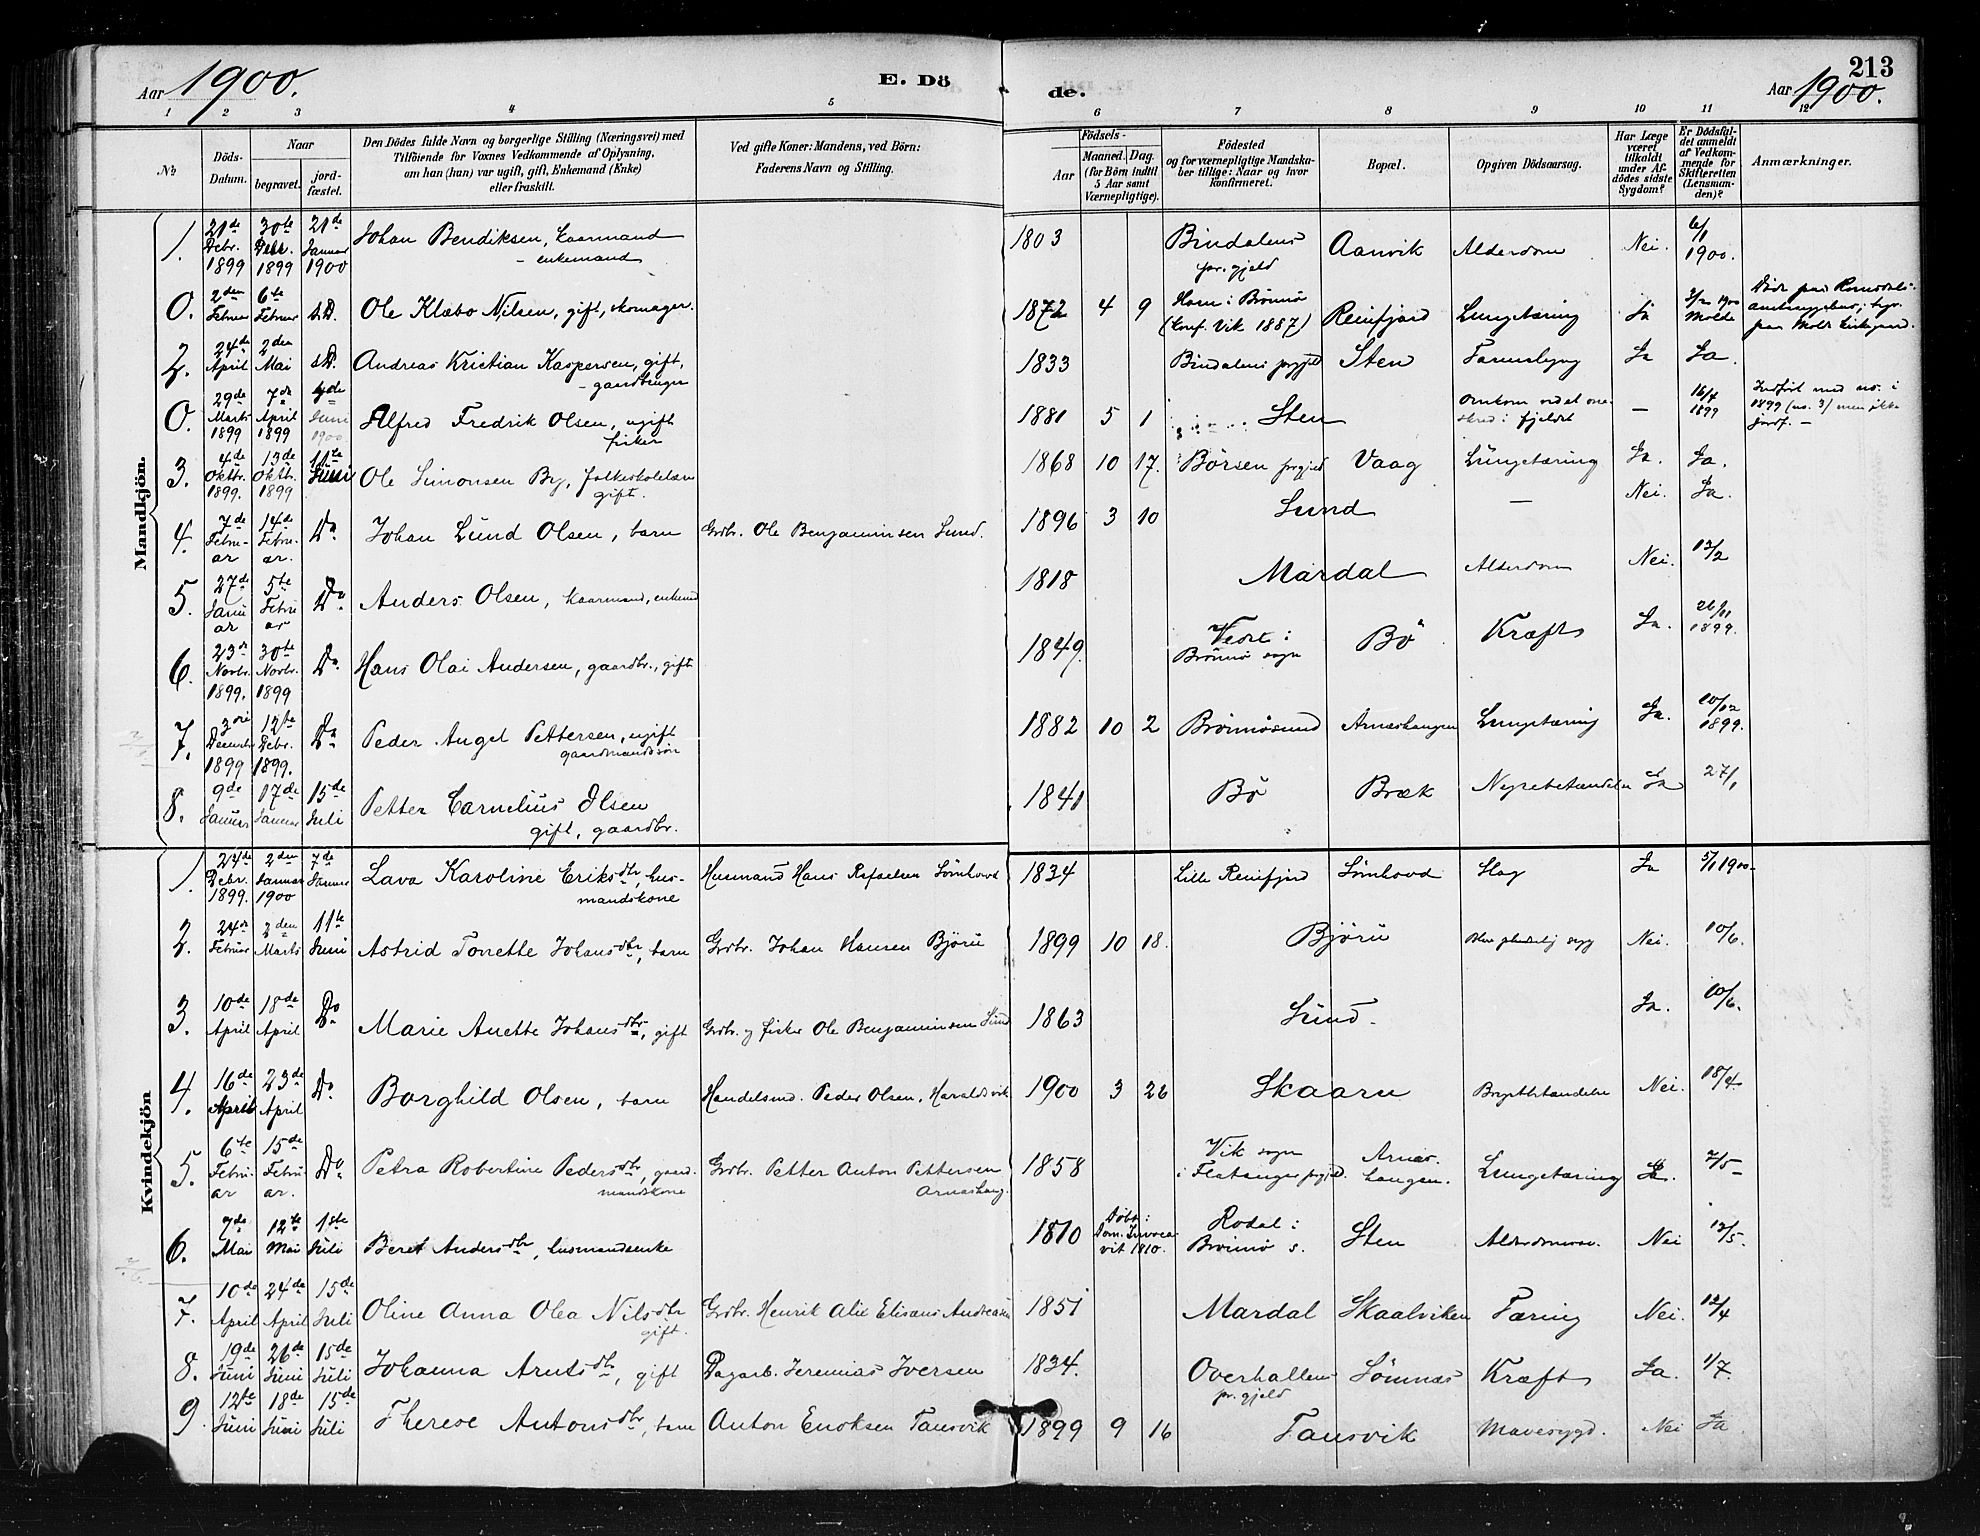 213
Aar 1900. E. Dö de. Aar 1900.
1 2 3 4 5 6 7 8 9 10 11 12
No
Döds-Datum.
Naar
begravet.
jord-fæstet.
Den Dödes fulde Navn og borgerlige Stilling (Næringsvei) med
Tilföiende for Voxnes Vedkommende af Oplysning,
om han (hun) var ugift, gift, Enkemand (Enke)
eller fraskilt.
Ved gifte Koner: Mandens, ved Börn:
Faderens Navn og Stilling.
Födsels-
Aar
Maaned. Dag.
(for Börn indtil
5 Aar samt
Værnepligtige).
Födested
og for værnepligtige Mandska-
ber tillige: Naar og hvor
konfirmeret.
Bopæl.
Opgiven Dödsaarsag.
Har Læge
været
tilkaldt
under Af-
dödes sidste
Sygdom?
Er Dödsfal-
det anmeldt
af Vedkom-
mende for
Skifteretten
(Lensman-
den)?
Anmærkninger.
Mandkjön.
1. 21de Debr. 1899 30te Debr. 1899 21de Januar 1900 Johan Bendiksen, kaarmand - enkemand 1803 Bindalens pr.gjeld Aanvik Alderdom Nei. 6/1 1900.
0. 2den Februar 6te Februar s.D. Ole Klæbo Nilsen, gift, skomager. 1872 4 9 Horn i Brönnö (konf. Vik 1887) Reinfjord Lungetæring Ja 3/2 1900 Molde Död paa Romsdals amtssygehus, begr. paa Molde kirkegaard.
2. 24de April 2den Mai s.D. Andreas Kristian Kaspersen, gift, - gaardbruger 1833 Bindalens prgjeld Sten Ja Ja.
0. 29de Marts 1899 7de April 1899 4de Juni 1900 Alfred Fredrik Olsen, ugift fisker 1881 5 1 Sten Omkom ved et sneskred i fjeldet — 16/4 1899 Indført med no. i 1899 (no. 3) men ikke jordf. —
3. 4de Oktbr. 1899. 13de Oktbr. 1899 11te Juni Ole Simonsen By, folkeskolelærer gift. 1868 10 17. Börsen prgjeld Vaag Lungetæring Ja. Ja.
4. 7de Februar 14de Februar. Do Johan Lund Olsen, barn Grdbr. Ole Benjaminsen Lund. 1896 3 10 Lund — Nei. Ja.
5. 27de Januar 5te Februar Do Anders Olsen, kaarmand, enkemd 1818 Mardal Alderdom Nei. 12/2
6. 23de Novbr. 1899. 30te Novbr. 1899 Do Hans Olai Andersen, gaardbr., gift 1849. i Brönnö sogn Bö Kræft Ja. 26/11 1899.
7. 3die Decembr 1899 12te Debr. 1899. Do Peder Angel Pettersen, ugift gaardmandssøn 1882 10 2 Brönnösund Arnashaugen Lungetæring Ja. 10/12 1899.
8. 9de Januar 17de Januar 15de Juli Petter Cornelius Olsen gift, gaardbr. 1841 Bö Bræk Nyrebetændelse Ja 27/1
Kvindekjön
1. 24de Debr. 1899. 2den Januar 1900 7de Januar Lava Karoline Eriksdtr, husmandskone Husmand Hans Rafaelsen Sömhovd 1834 Lille Reinfjord Sömhovd Slag Ja 5/1 1900
2. 24de Februar 2den Marts 11te Juni Astrid Tonette Johansdtr, barn Grdbr. Johan Hansen Björu 1899 10 18. Björu Blev pludselig syg Nei. 10/6.
3. 10de April 18de April Do Marie Anette Johansdtr, gift Grdbr. og fisker Ole Benjaminsen Lund 1863 Lund. Ja. 10/6.
4. 16de April 23de April Do Borghild Olsen, barn Handelsmd. Peder Olsen, Haraldsvik 1900 3 26 Skaaru Brystbetændelse Nei. 18/4
5. 6te Februar 15de Februar. Do Petra Robertine Pedersdtr, gaardmandskone Grdbr. Petter Anton Pettersen Arnashaug. 1858 Vik sogn i Flatanger prgjeld. Arnashaugen. Lungetæring Ja. 7/5
6. 7de Mai 12te Mai 1ste Juli Beret Andersdtr, husmandsenke 1810 Döbt: Dom. Invocavit 1810. Rodal i Brönnö s. Sten Alderdomssv. Nei 12/5.
7. 10de April 24de April 15de Juli Oline Anna Olea Nilsdtr gift. Grdbr. Henrik Alie Elisæus Andreassen 1851 Mardal Skaalviken Tæring Nei. 12/4
8. 19de Juni 26de Juni 15de Juli Johanna Arntsdtr, gift Dagarb. Jeremias Iversen 1834. Overhallens pr.gjeld Sömnæs Kræft Ja. 1/7.
9. 12te Juni 18de Juni 15de Juli Therese Antonsdtr, barn Anton Enoksen Tansvik 1899 9 16 Tansvik Mavesygd. Nei Ja